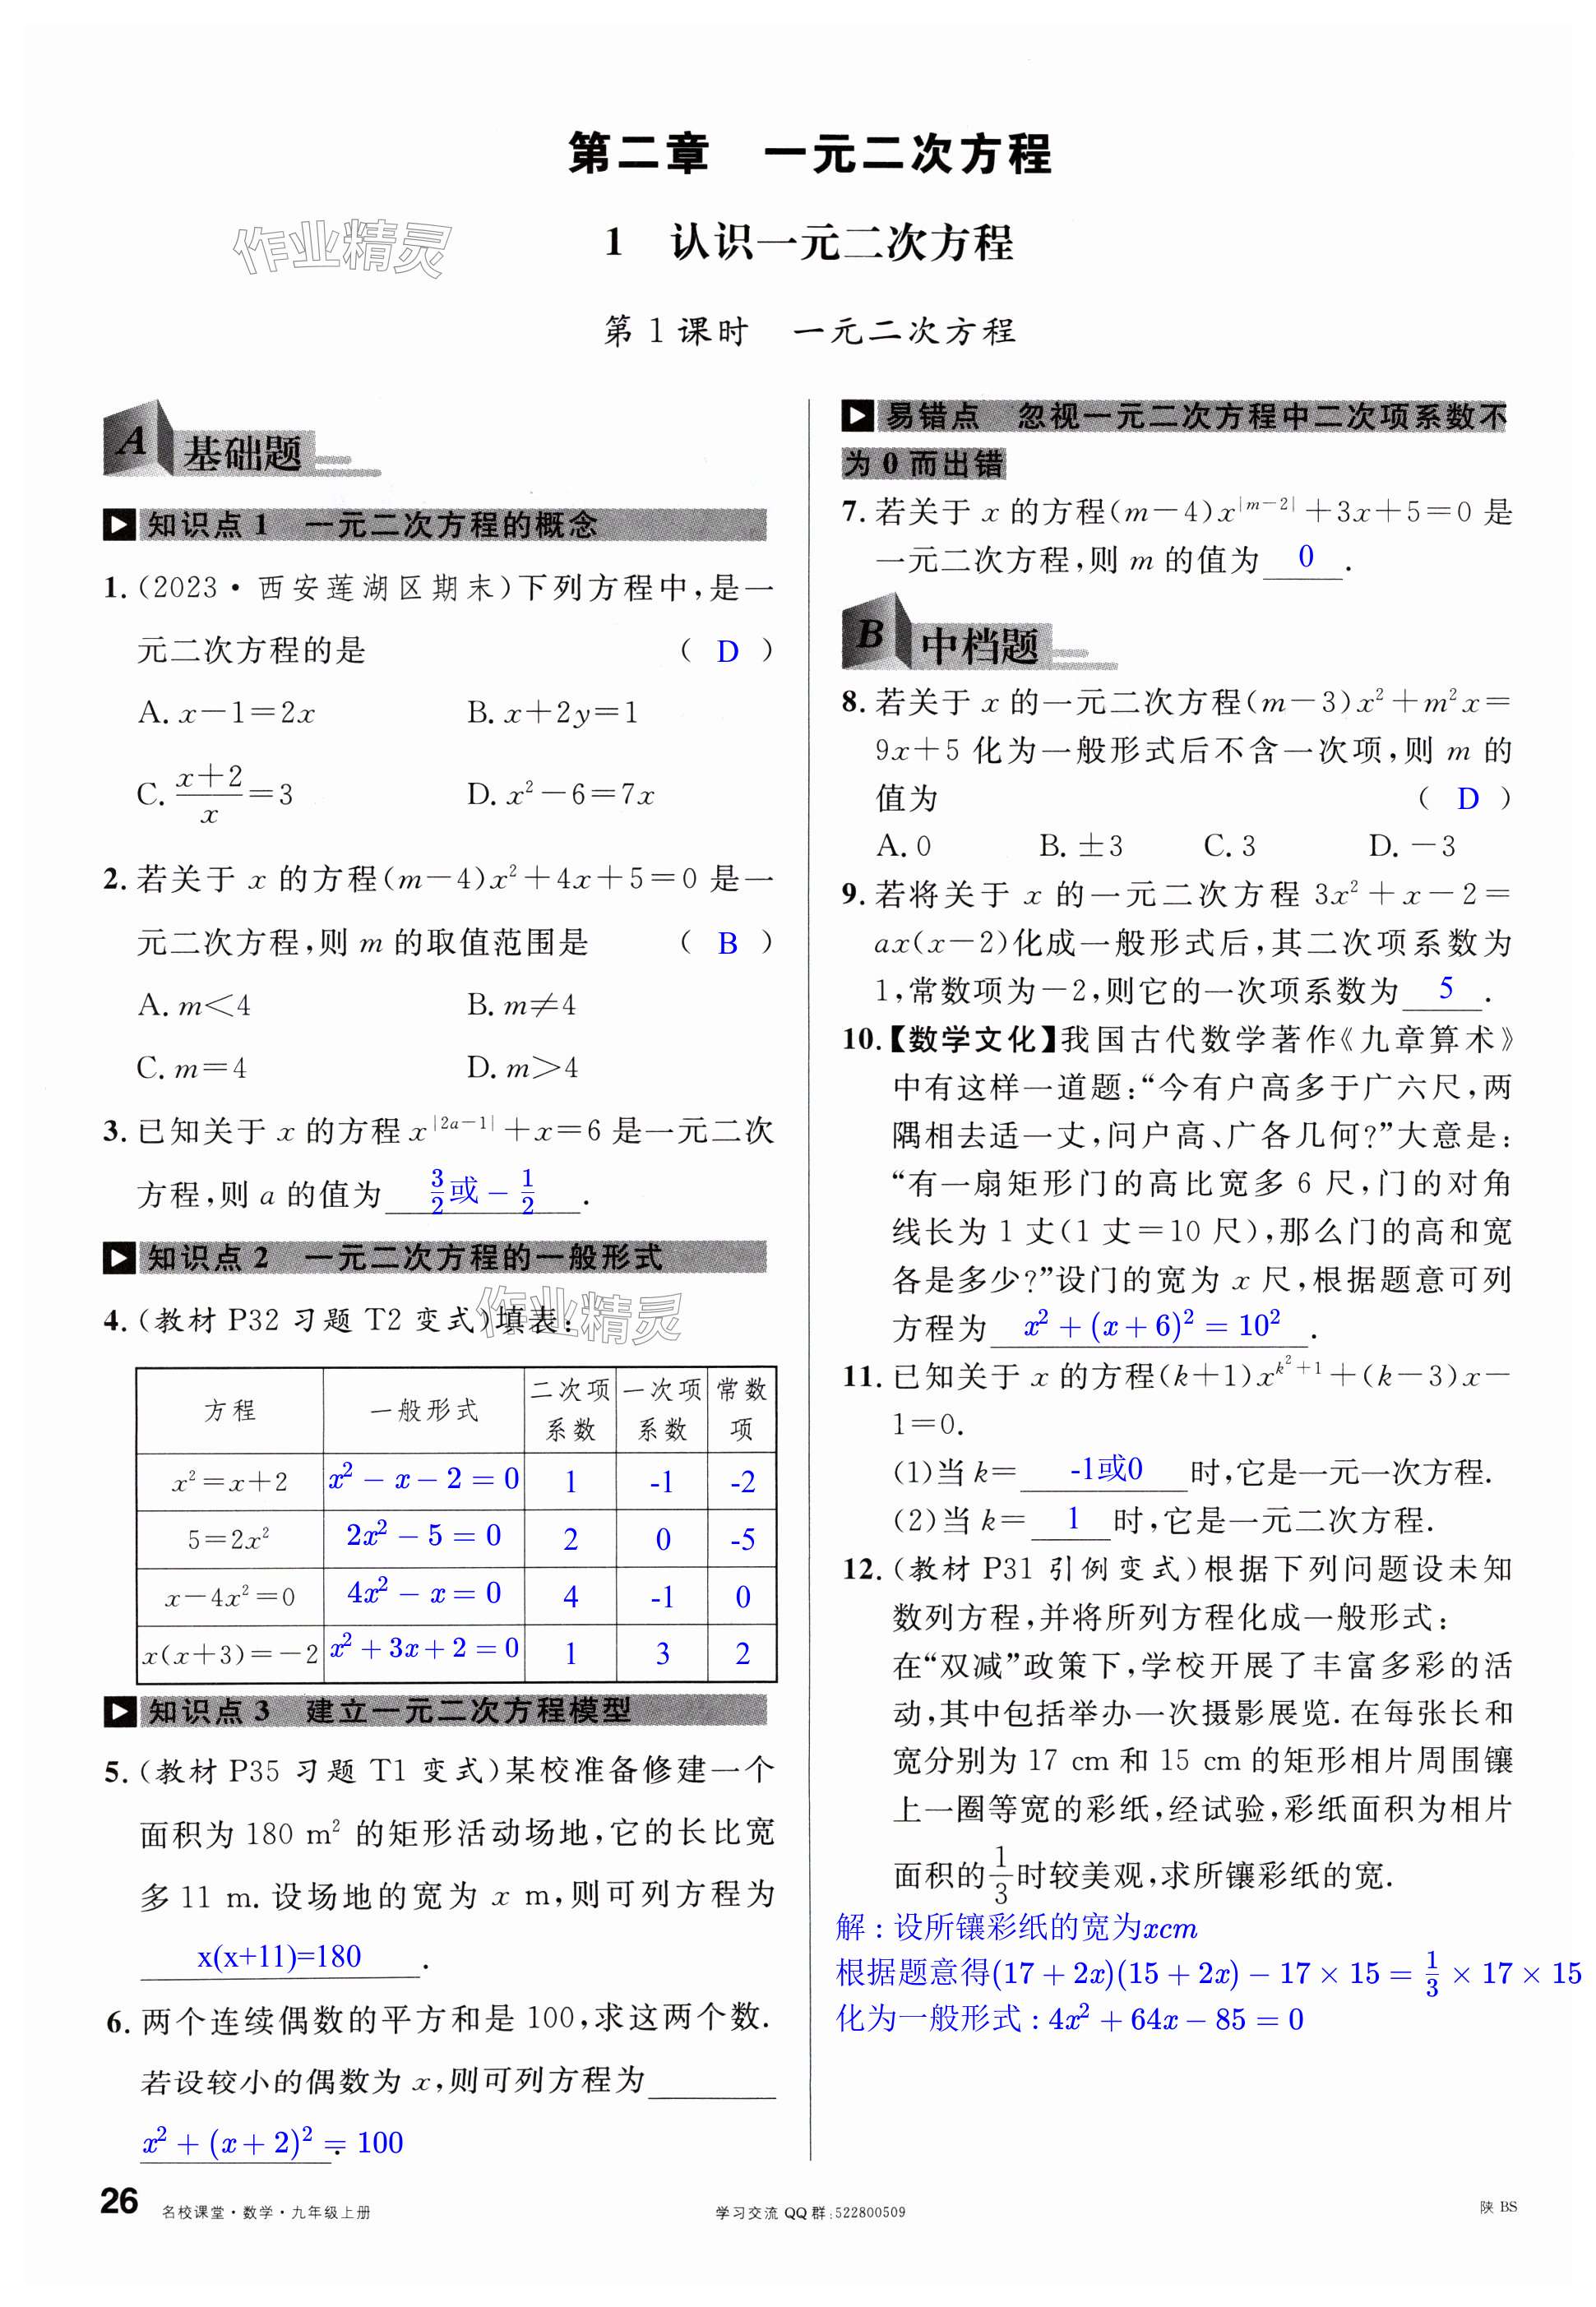 第二章　一元二次方程
作业精灵
1　认识一元二次方程
第1课时　一元二次方程
A 基础题
知识点1　一元二次方程的概念
1.(2023·西安莲湖区期末)下列方程中,是一
元二次方程的是 ( D )
A. x－1＝2x　B. x＋2y＝1
C. \frac{x＋2}{x}＝3　D. x²－6＝7x
2. 若关于 x 的方程(m－4)x²＋4x＋5＝0 是一
元二次方程,则 m 的取值范围是 ( B )
A. m＜4　B. m≠4
C. m＝4　D. m＞4
3. 已知关于 x 的方程 x^{|2a－1|}＋x＝6 是一元二次
方程,则 a 的值为 \frac{3}{2}或－\frac{1}{2}.
知识点2　一元二次方程的一般形式
4.(教材 P32 习题 T2 变式)填表:
作业精灵
方程　一般形式　二次项系数　一次项系数　常数项
x²＝x＋2　x²－x－2＝0　1　-1　-2
5＝2x²　2x²－5＝0　2　0　-5
x－4x²＝0　4x²－x＝0　4　-1　0
x(x＋3)＝－2　x²＋3x＋2＝0　1　3　2
知识点3　建立一元二次方程模型
5.(教材 P35 习题 T1 变式)某校准备修建一个
面积为 180 m² 的矩形活动场地,它的长比宽
多 11 m. 设场地的宽为 x m,则可列方程为
x(x+11)=180.
6. 两个连续偶数的平方和是 100,求这两个数.
若设较小的偶数为 x,则可列方程为
x²＋(x＋2)²＝100.
易错点　忽视一元二次方程中二次项系数不
为 0 而出错
7. 若关于 x 的方程(m－4)x^{|m－2|}＋3x＋5＝0 是
一元二次方程,则 m 的值为 0.
B 中档题
8. 若关于 x 的一元二次方程(m－3)x²＋m²x＝
9x＋5 化为一般形式后不含一次项,则 m 的
值为 ( D )
A. 0　B. ±3　C. 3　D. －3
9. 若将关于 x 的一元二次方程 3x²＋x－2＝
ax(x－2)化成一般形式后,其二次项系数为
1,常数项为－2,则它的一次项系数为 5.
10.【数学文化】我国古代数学著作《九章算术》
中有这样一道题:“今有户高多于广六尺,两
隅相去适一丈,问户高、广各几何?”大意是:
“有一扇矩形门的高比宽多 6 尺,门的对角
线长为 1 丈(1 丈＝10 尺),那么门的高和宽
各是多少?”设门的宽为 x 尺,根据题意可列
方程为 x²＋(x＋6)²＝10².
11. 已知关于 x 的方程(k＋1)x^{k²＋1}＋(k－3)x－
1＝0.
(1)当 k＝ -1或0 时,它是一元一次方程.
(2)当 k＝ 1 时,它是一元二次方程.
12.(教材 P31 引例变式)根据下列问题设未知
数列方程,并将所列方程化成一般形式:
在“双减”政策下,学校开展了丰富多彩的活
动,其中包括举办一次摄影展览. 在每张长和
宽分别为 17 cm 和 15 cm 的矩形相片周围镶
上一圈等宽的彩纸,经试验,彩纸面积为相片
面积的\frac{1}{3}时较美观,求所镶彩纸的宽.
解:设所镶彩纸的宽为xcm
根据题意得(17＋2x)(15＋2x)－17×15＝\frac{1}{3}×17×15
化为一般形式:4x²＋64x－85＝0
26　名校课堂·数学·九年级上册　学习交流 QQ 群:522800509　陕 BS